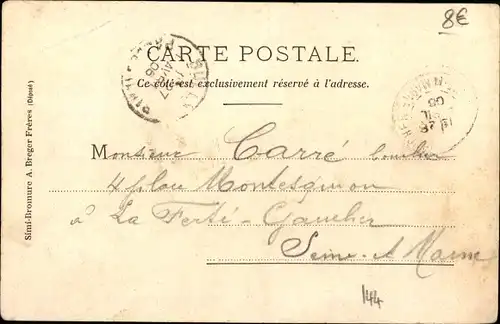 8€
CARTE POSTALE.
Ce côté est exclusivement réservé à l'adresse.
Monsieur Carré
4 place Montesquiou
à La Ferté-Gaucher
Seine-et-Marne
144
Simi-Bromure A. Breger Frères (Déposé)